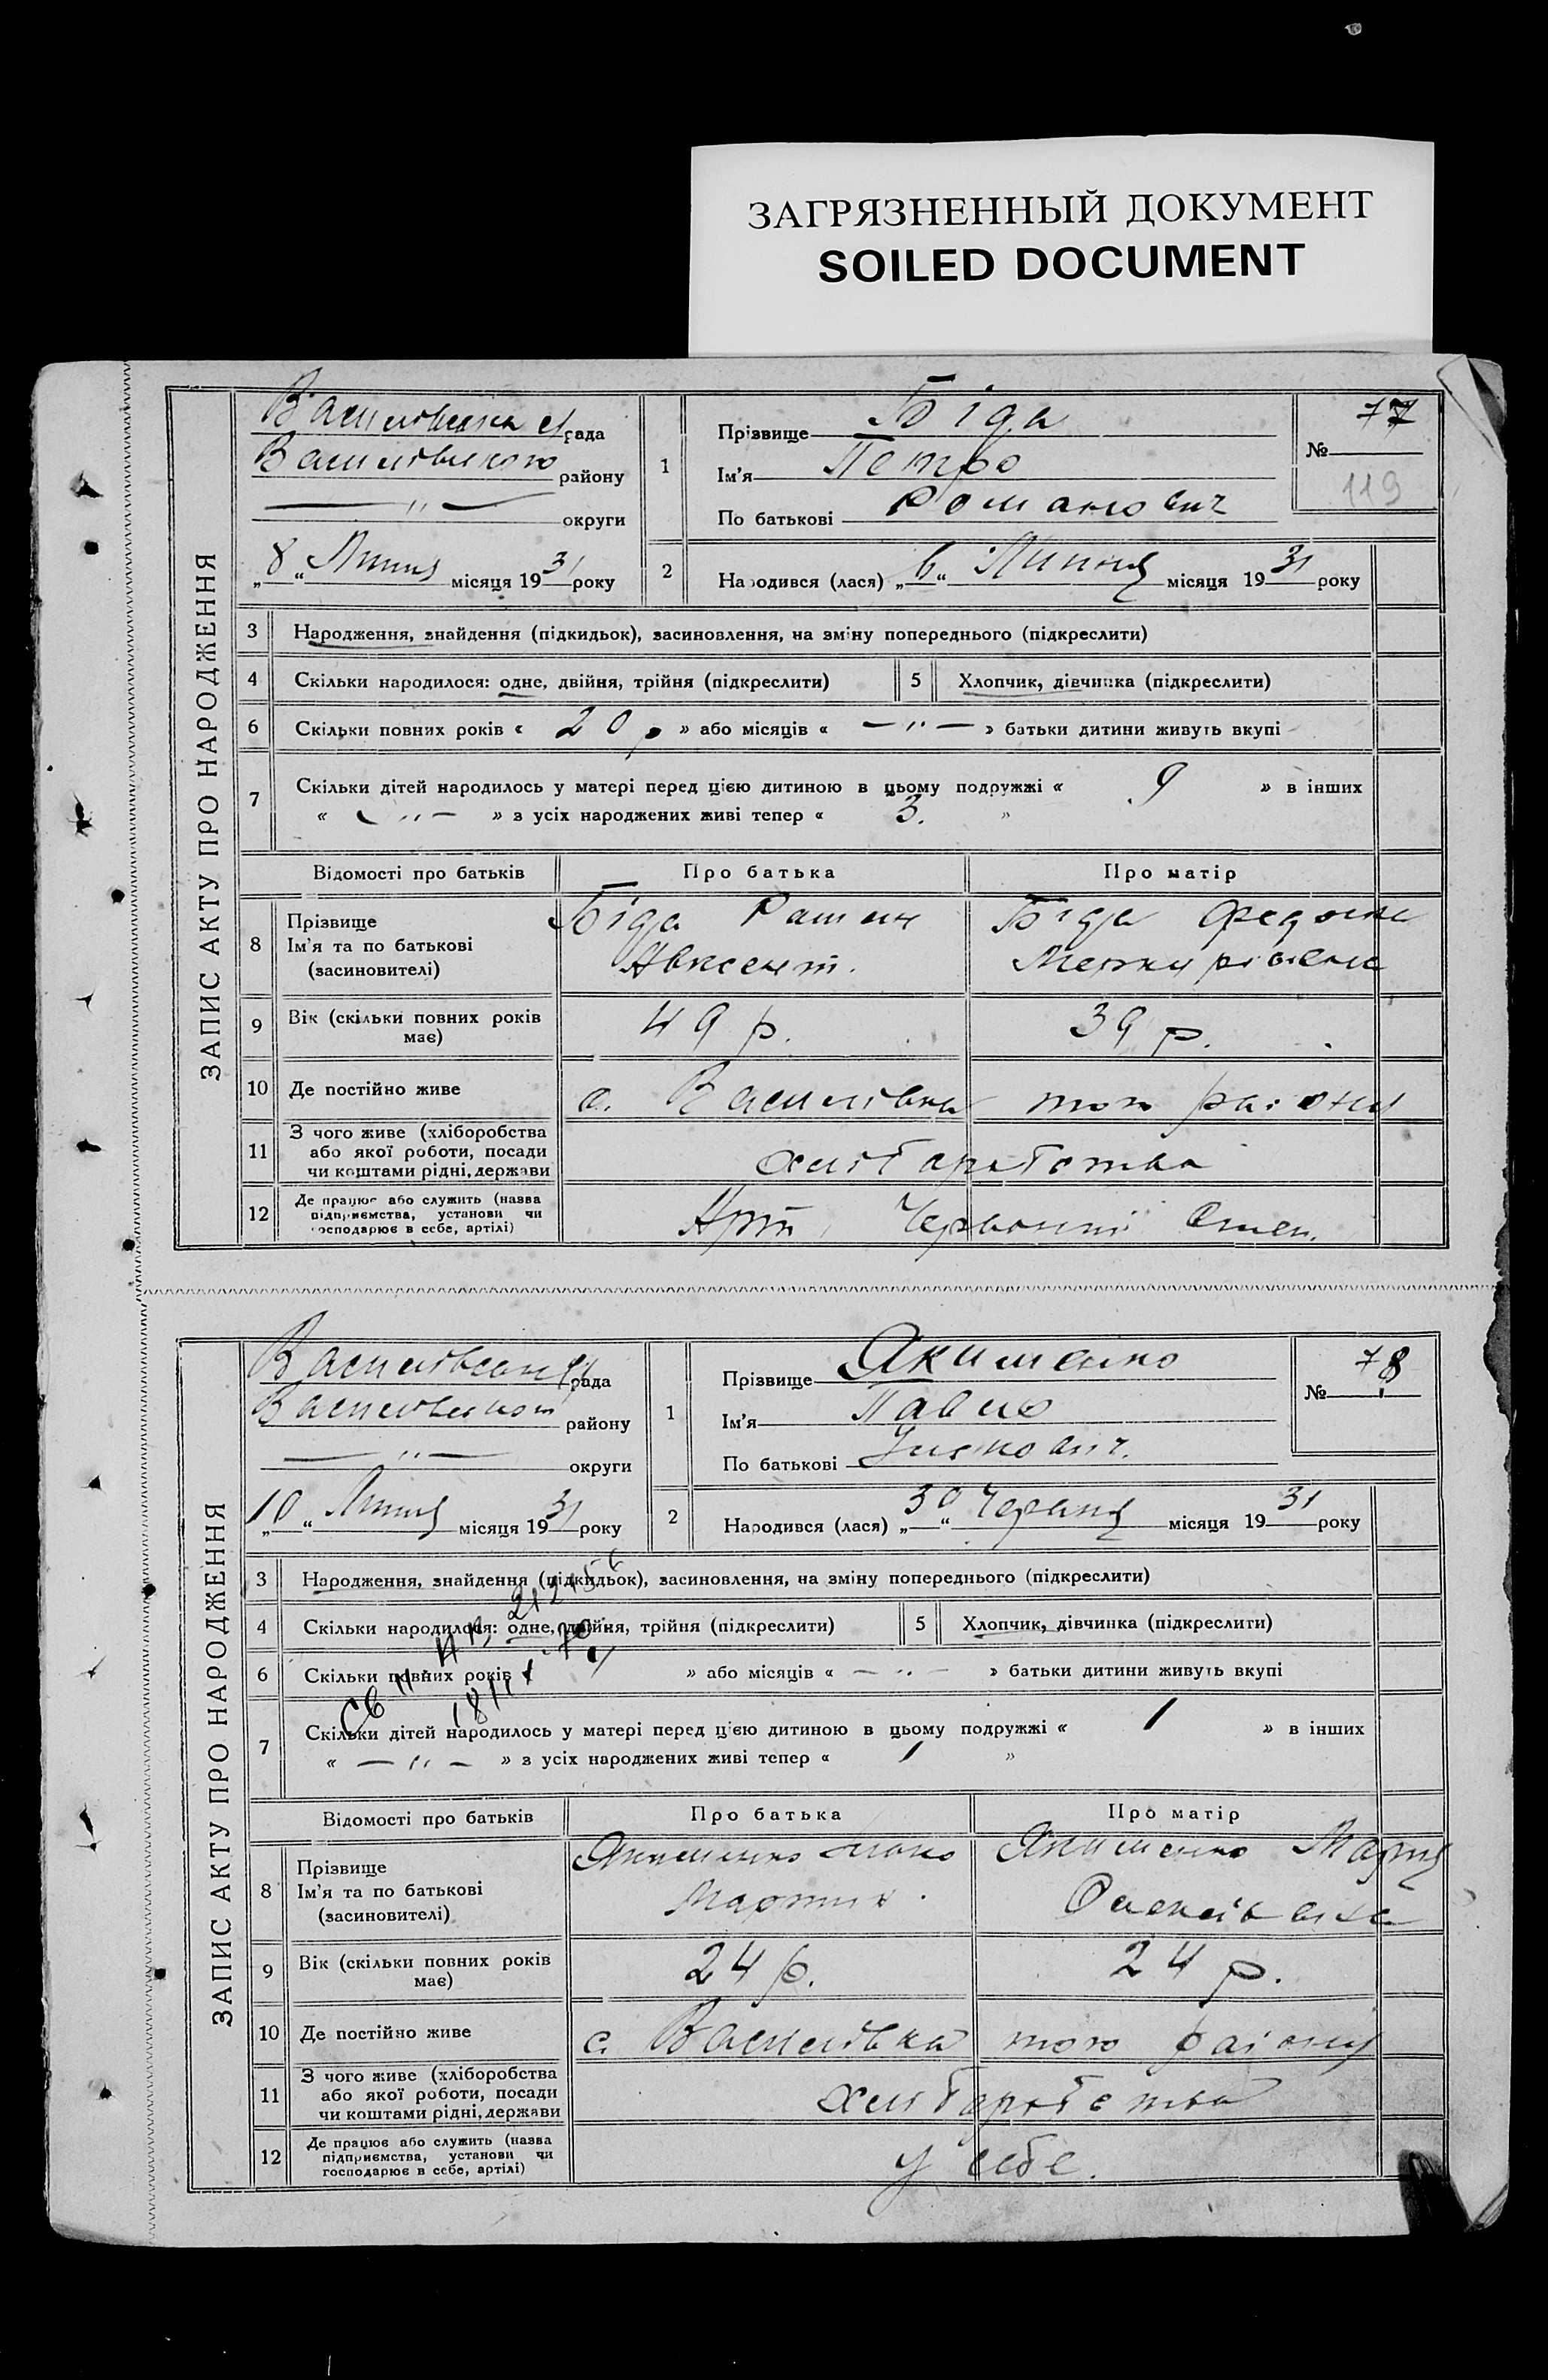 ЗАГРЯЗНЕННЫЙ ДОКУМЕНТ
SOILED DOCUMENT
ЗАПИС АКТУ ПРО НАРОДЖЕННЯ
Василівська с/рада
Василівського району
— " — округи
„8“ Липня місяця 1931 року
1
Прізвище Біда
Ім'я Петро
По батькові Романович
№ 77
119
2
Народився (лася) „6“ Липня місяця 1931 року
3 Народження, знайдення (підкидьок), засиновлення, на зміну попереднього (підкреслити)
4 Скільки народилося: одне, двійня, трійня (підкреслити) 5 Хлопчик, дівчинка (підкреслити)
6 Скільки повних років « 20 р » або місяців « — " — » батьки дитини живуть вкупі
7 Скільки дітей народилось у матері перед цією дитиною в цьому подружжі « 9 » в інших
« — " — » з усіх народжених живі тепер « 3. »
Відомості про батьків Про батька Про матір
8 Прізвище
Ім'я та по батькові
(засиновителі)
Біда Роман
Авксент.
Біда Федосія
9 Вік (скільки повних років
має)
49 р. 39 р.
10 Де постійно живе с. Василівка того району
11 З чого живе (хліборобства
або якої роботи, посади
чи коштами рідні, держави
хліборобство
12 Де працює або служить (назва
підприємства, установи чи
господарює в себе, артілі)
Арт. Червоний Степ.
ЗАПИС АКТУ ПРО НАРОДЖЕННЯ
Василівська с/рада
Василівського району
— " — округи
„10“ Липня місяця 1931 року
1
Прізвище Якименко
Ім'я Павло
По батькові
№ 78
2
Народився (лася) „30“ Червня місяця 1931 року
3 Народження, знайдення (підкидьок), засиновлення, на зміну попереднього (підкреслити)
4 Скільки народилося: одне, двійня, трійня (підкреслити) 5 Хлопчик, дівчинка (підкреслити)
6 Скільки повних років « » або місяців « — " — » батьки дитини живуть вкупі
7 Скільки дітей народилось у матері перед цією дитиною в цьому подружжі « 1 » в інших
« — " — » з усіх народжених живі тепер « 1 »
Відомості про батьків Про батька Про матір
8 Прізвище
Ім'я та по батькові
(засиновителі)
Якименко
Мартин.
Якименко Марія
Олексіївна
9 Вік (скільки повних років
має)
24 р. 24 р.
10 Де постійно живе с. Василівка того району
11 З чого живе (хліборобства
або якої роботи, посади
чи коштами рідні, держави
хліборобства
12 Де працює або служить (назва
підприємства, установи чи
господарює в себе, артілі)
у себе.